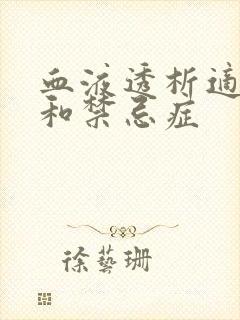 血液透析適
和禁忌症
徐藝珊